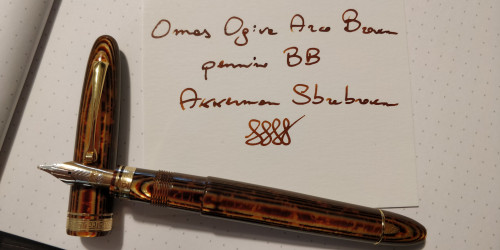 Omas Ogiva Arco Brown
pennino BB
Akkerman Sbrebrown